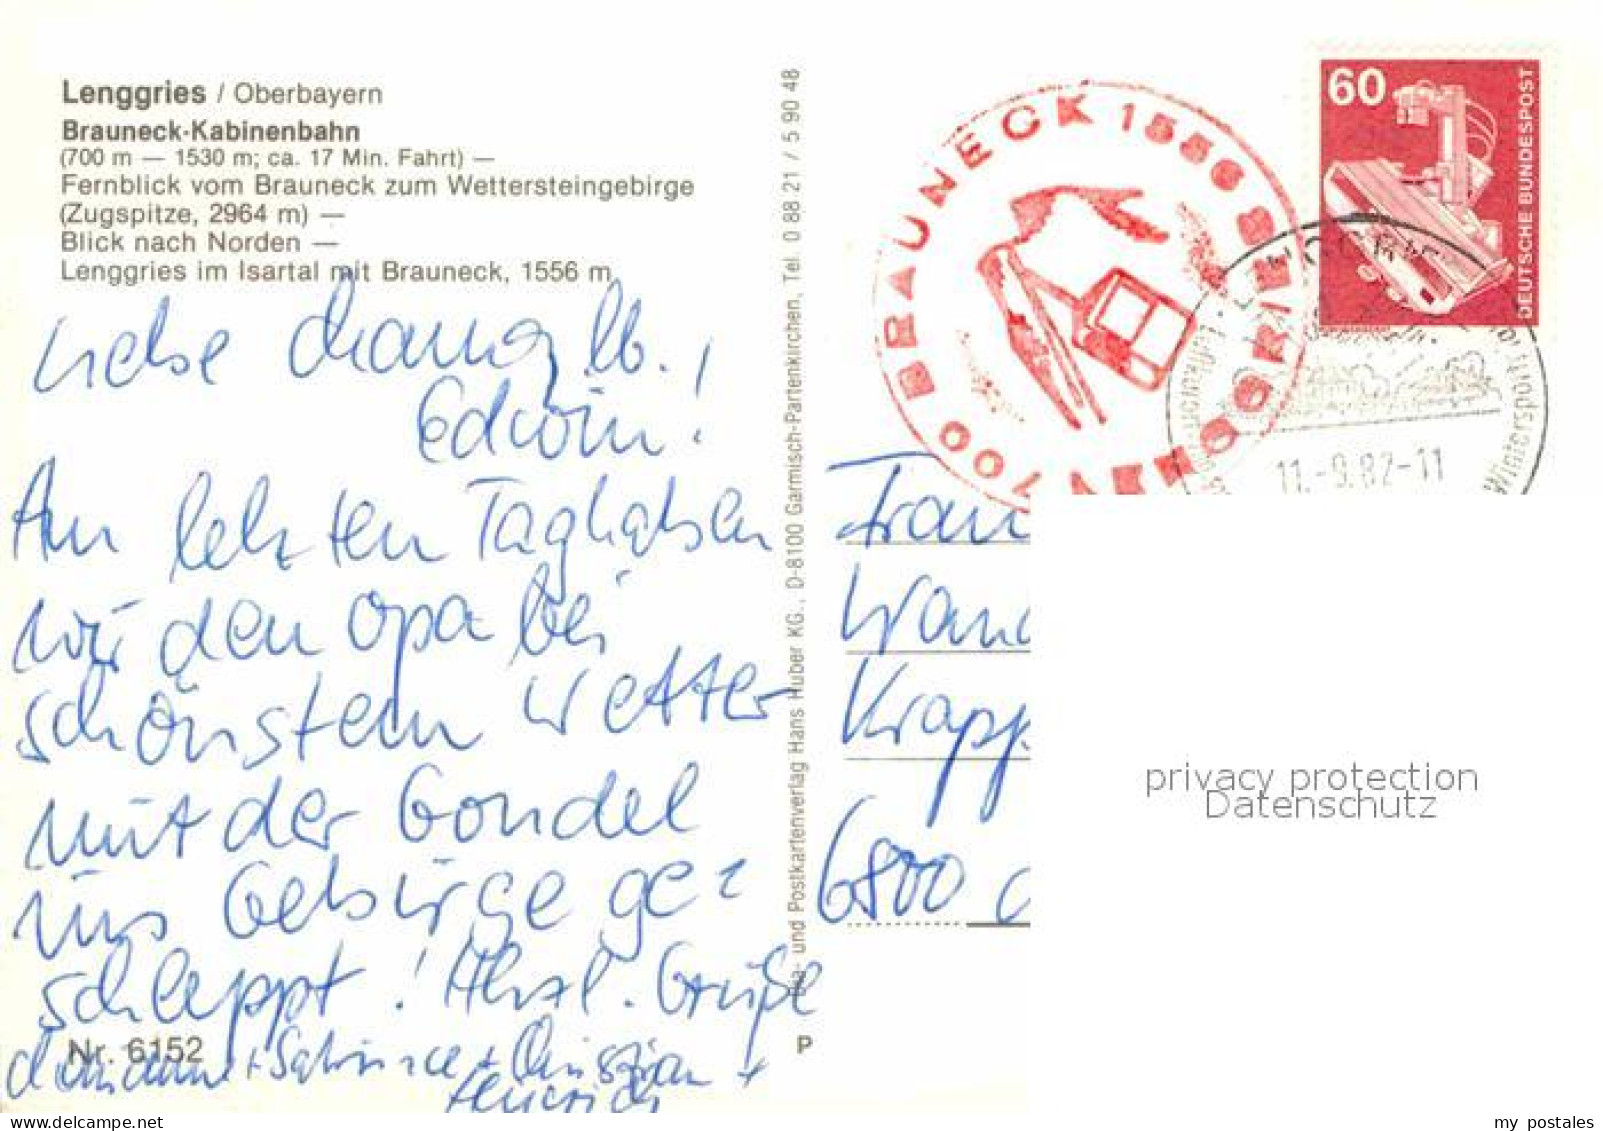 Lenggries / Oberbayern
Brauneck-Kabinenbahn
(700 m — 1530 m; ca. 17 Min. Fahrt) —
Fernblick vom Brauneck zum Wettersteingebirge
(Zugspitze, 2964 m) —
Blick nach Norden —
Lenggries im Isartal mit Brauneck, 1556 m
Liebe lb.,
Edwin!
Am letzten Tag haben
wir den Opa bei
schönstem Wetter
mit der Gondel
ins Gebirge ge-
schleppt! Herzl. Grüße
+ Sabine + Christian +
Heinrich
Nr. 6152
P
Dia- und Postkartenverlag Hans Huber KG., D-8100 Garmisch-Partenkirchen, Tel. 0 88 21 / 5 90 48
700 BRAUNECK 1556
60
DEUTSCHE BUNDESPOST
Wintersport
11.-9.82-11
Frau
Wand
Krapp
6800
privacy protection
Datenschutz
my postales